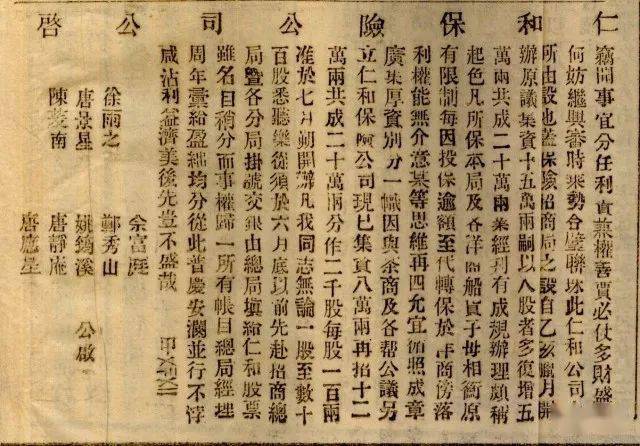 仁和保險公司公啓
竊聞事宜分任利貴兼權善賈必仗多財盛
何妨繼興審時乘勢合璧聯珠此仁和公司
所由設也蓋保險招商局之設自乙亥臘月開
辦原議集資十五萬兩嗣以入股者多復增五
萬兩共成二十萬兩業經刊有成規辦理頗稱
起色凡所保本局及各洋商船貨子母相衡原
有限制每因投保逾額至代轉保於洋商傍落
利權能無介意某等思維再四允宜循照成章
廣集厚資別分一幟因與茶商及各幫公議另
立仁和保險公司現已集資八萬兩再招十二
萬兩共成二十萬兩分作二千股每股一百兩
准於七月朔開辦凡我同志無論一股至數十
百股悉聽樂從須於六月底以前先赴招商總
局暨各分局掛號交銀由總局填給仁和股票
雖名目稍分而事權歸一所有帳目總局經理
周年彙給盈絀均分從此普慶安瀾並行不悖
咸沾利益濟美後先豈不盛哉
余富庭
徐雨之 鄭秀山
唐景星 姚鍔溪 公啟
陳茇南 唐靜庵
唐應星